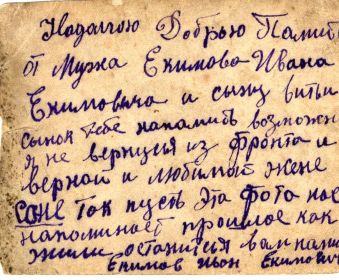 На долгою Добрью Памить
от Мужа Екимова Ивана
Екимовича и сыну Вити
сынок тебе на память возможн
я не вернуся из фронта и
верной и любимой жене
Соне так пусть эта фото нас
напоминает прошлое как
жили останится вам на
Екимов Иван Екимович